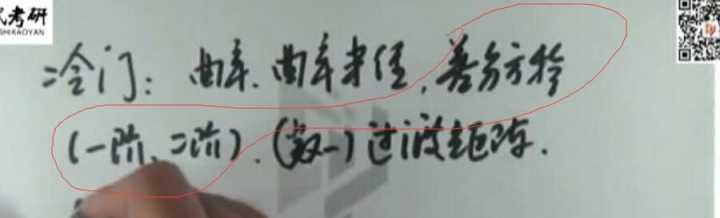 考研
SHIKAOYAN
冷门：曲率.曲率半径,差分方程
(一阶、二阶).(数一)过渡矩阵.